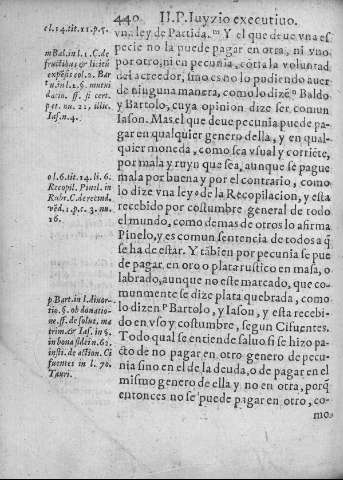 440 II.P. Iuyzio executiuo.
cl.14.tit.11.p.5.
m Bal. in l. 1. C. de
fructibus & liciti
expēsis col. 2. Bar
tu. in l. 2. §. mutui
datio. ff. si cert.
pet. nu. 22. illic.
Ias. n. 4.
o l. 6. tit. 14. li. 6.
Recopil. Pinel. in
Rubr. C. de rescind.
vēd. 1. p. c. 3. nu.
16.
p Bart. in l. Auor-
tio. §. ob donatio-
ne. ff. de solut. ma
trim. & Ias. in §.
in bona fidei n. 62.
insti. de action. Ci
fuentes in l. 70.
Tauri.
vna ley de Partida. m Y el que deue vna es
pecie no la puede pagar en otra, ni vno
por otro, ni en pecunia, cōtra la voluntad
del acreedor, sino es no lo pudiendo auer
de ninguna manera, como lo dizē n Baldo
y Bartolo, cuya opinion dize ser comun
Iason. Mas el que deue pecunia puede pa-
gar en qualquier genero della, y en qual-
quier moneda, como sea vsual y corriēte,
por mala y ruyn que sea, aunque se pague
mala por buena y por el contrario, como
lo dize vna ley o de la Recopilacion, y esta
recebido por costumbre general de todo
el mundo, como demas de otros lo afirma
Pinelo, y es comun sentencia de todos a q̄
se ha de estar. Y tābien por pecunia se pue
de pagar, en oro o plata rustico en masa, o
labrado, aunque no este marcado, que co-
munmente se dize plata quebrada, como
lo dizen p Bartolo, y Iason, y esta recebi-
do en vso y costumbre, segun Cifuentes.
Todo qual se entiende saluo si se hizo pa-
cto de no pagar en otro genero de pecu-
nia sino en el de la deuda, o de pagar en el
mismo genero de ella y no en otra, porq̄
entonces no se puede pagar en otro, co-
mo